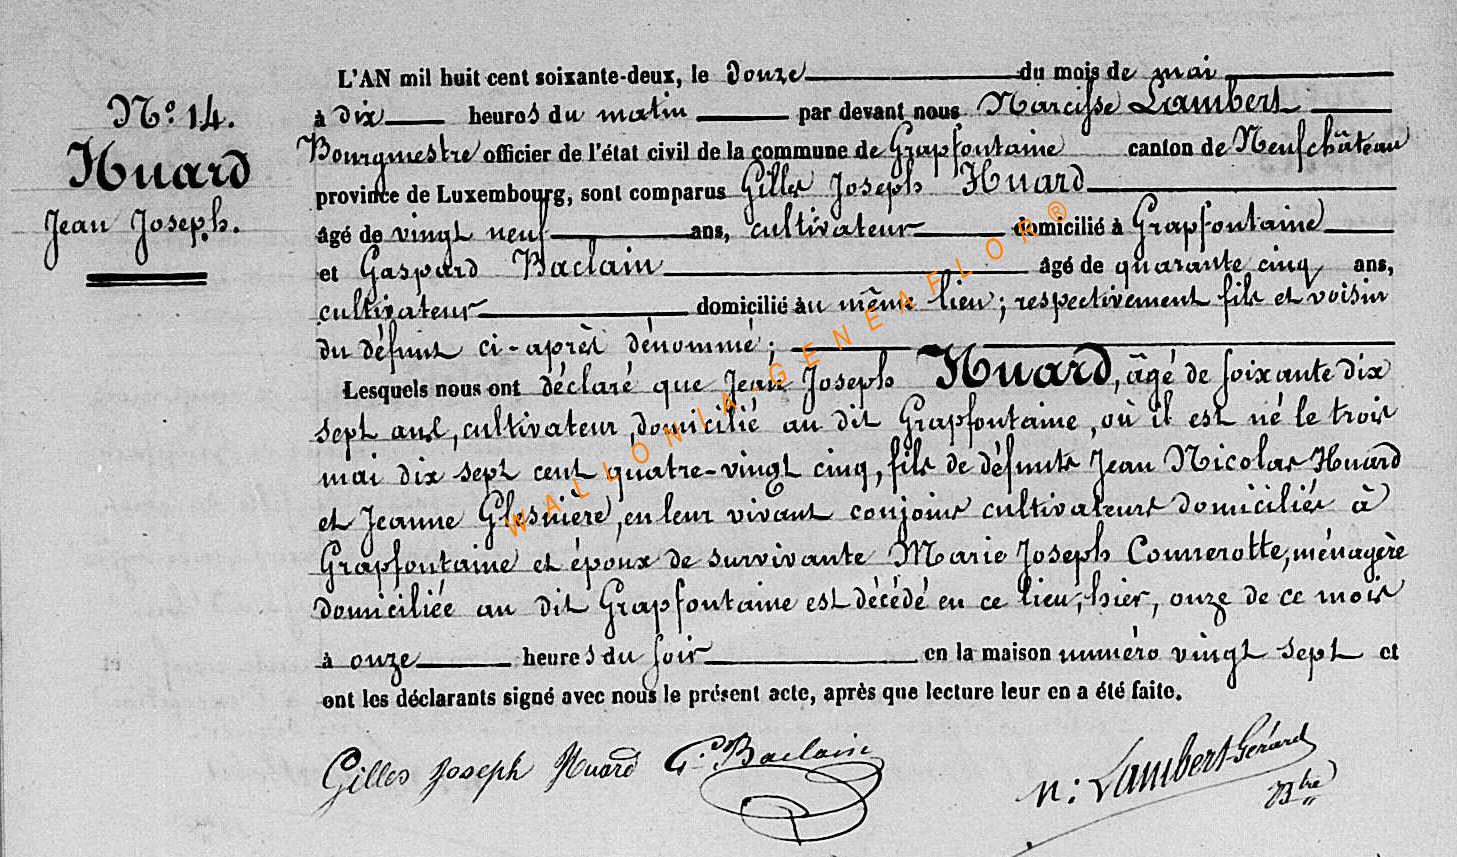 N.º 14.
Huard
Jean Joseph.
L'AN mil huit cent soixante-deux, le douze du mois de mai
à dix heures du matin par devant nous Narcisse Lambert
Bourgmestre officier de l'état civil de la commune de Grapfontaine canton de Neufchâteau
province de Luxembourg, sont comparus Gilles Joseph Huard
âgé de vingt neuf ans, cultivateur domicilié à Grapfontaine
et Gaspard Baclain âgé de quarante cinq ans,
cultivateur domicilié au même lieu; respectivement fils et voisin
du défunt ci-après dénommé;
Lesquels nous ont déclaré que Jean Joseph Huard, âgé de soixante dix
sept ans, cultivateur, domicilié au dit Grapfontaine, où il est né le trois
mai dix sept cent quatre-vingt cinq, fils de défunts Jean Nicolas Huard
et Jeanne Glesnière, en leur vivant conjoins cultivateurs domiciliés à
Grapfontaine et époux de survivante Marie Joseph Connerotte, ménagère
domiciliée au dit Grapfontaine est décédé en ce lieu, hier, onze de ce mois
à onze heures du soir en la maison numéro vingt sept et
ont les déclarants signé avec nous le présent acte, après que lecture leur en a été faite.
Gilles Joseph Huard G. Baclain N: Lambert-Gérard
Btre
WALLONIA-GENEAFLOR®